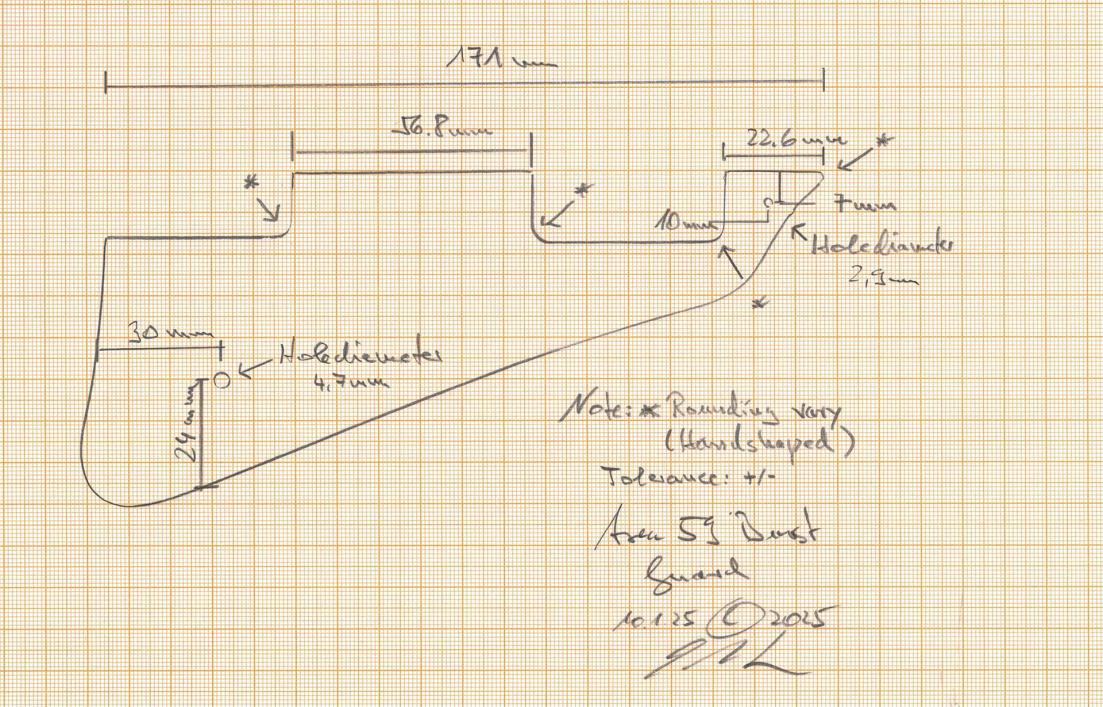 171 mm
56.8mm
22.6 mm
*
*
*
10mm
7mm
Holediameter
2,9mm
*
30 mm
Holediameter
4,7mm
24 mm
Note: * Rounding vary
(Handshaped)
Tolerance: +/-
Area 59 Burst
Guard
10.1.25 © 2025